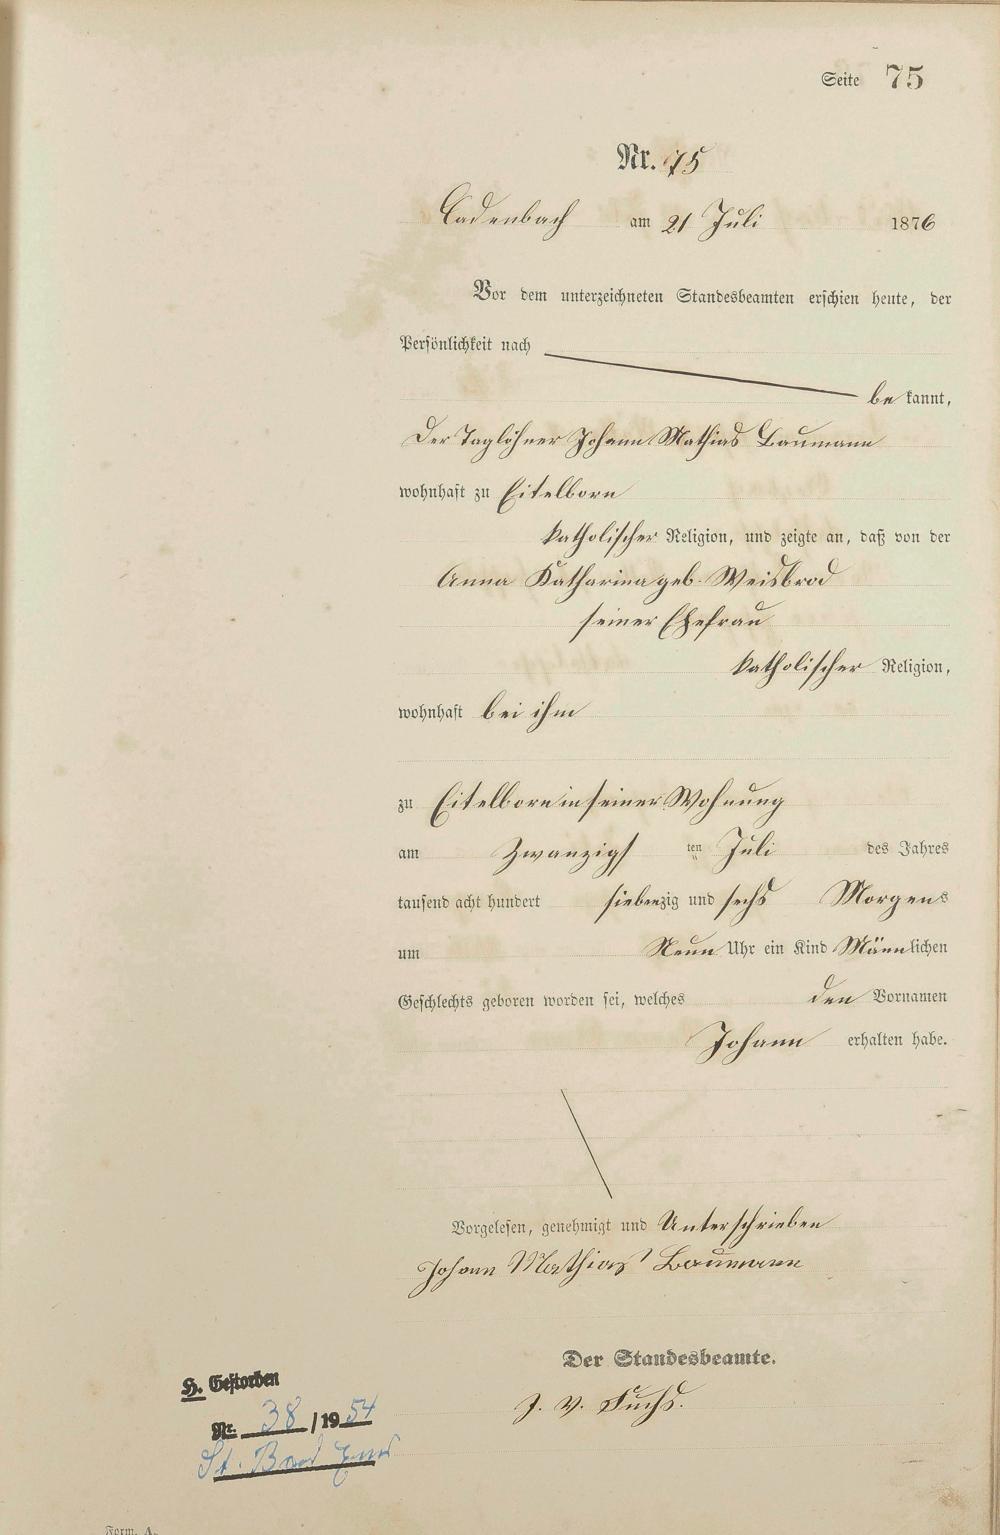 Seite 75
Nr. 75
Cadenbach am 21 Juli 1876
Vor dem unterzeichneten Standesbeamten erschien heute, der
Persönlichkeit nach
be kannt,
Der Taglöhner Johann Mathias Baumann
wohnhaft zu Eitelborn
katholischer Religion, und zeigte an, daß von der
Anna Katharina geb. Weisbrod
seiner Ehefrau
katholischer Religion,
wohnhaft bei ihm
zu Eitelborn in seiner Wohnung
am Zwanzigs ten Juli des Jahres
tausend acht hundert siebenzig und sechs Morgens
um Neun Uhr ein Kind Männlichen
Geschlechts geboren worden sei, welches den Vornamen
Johann erhalten habe.
Vorgelesen, genehmigt und Unterschrieben
Johann Mathias Baumann
Der Standesbeamte.
J. V. Fuchs.
H. Gestorben
Nr. 38 / 1954
St. Bad Ems
Form. A.